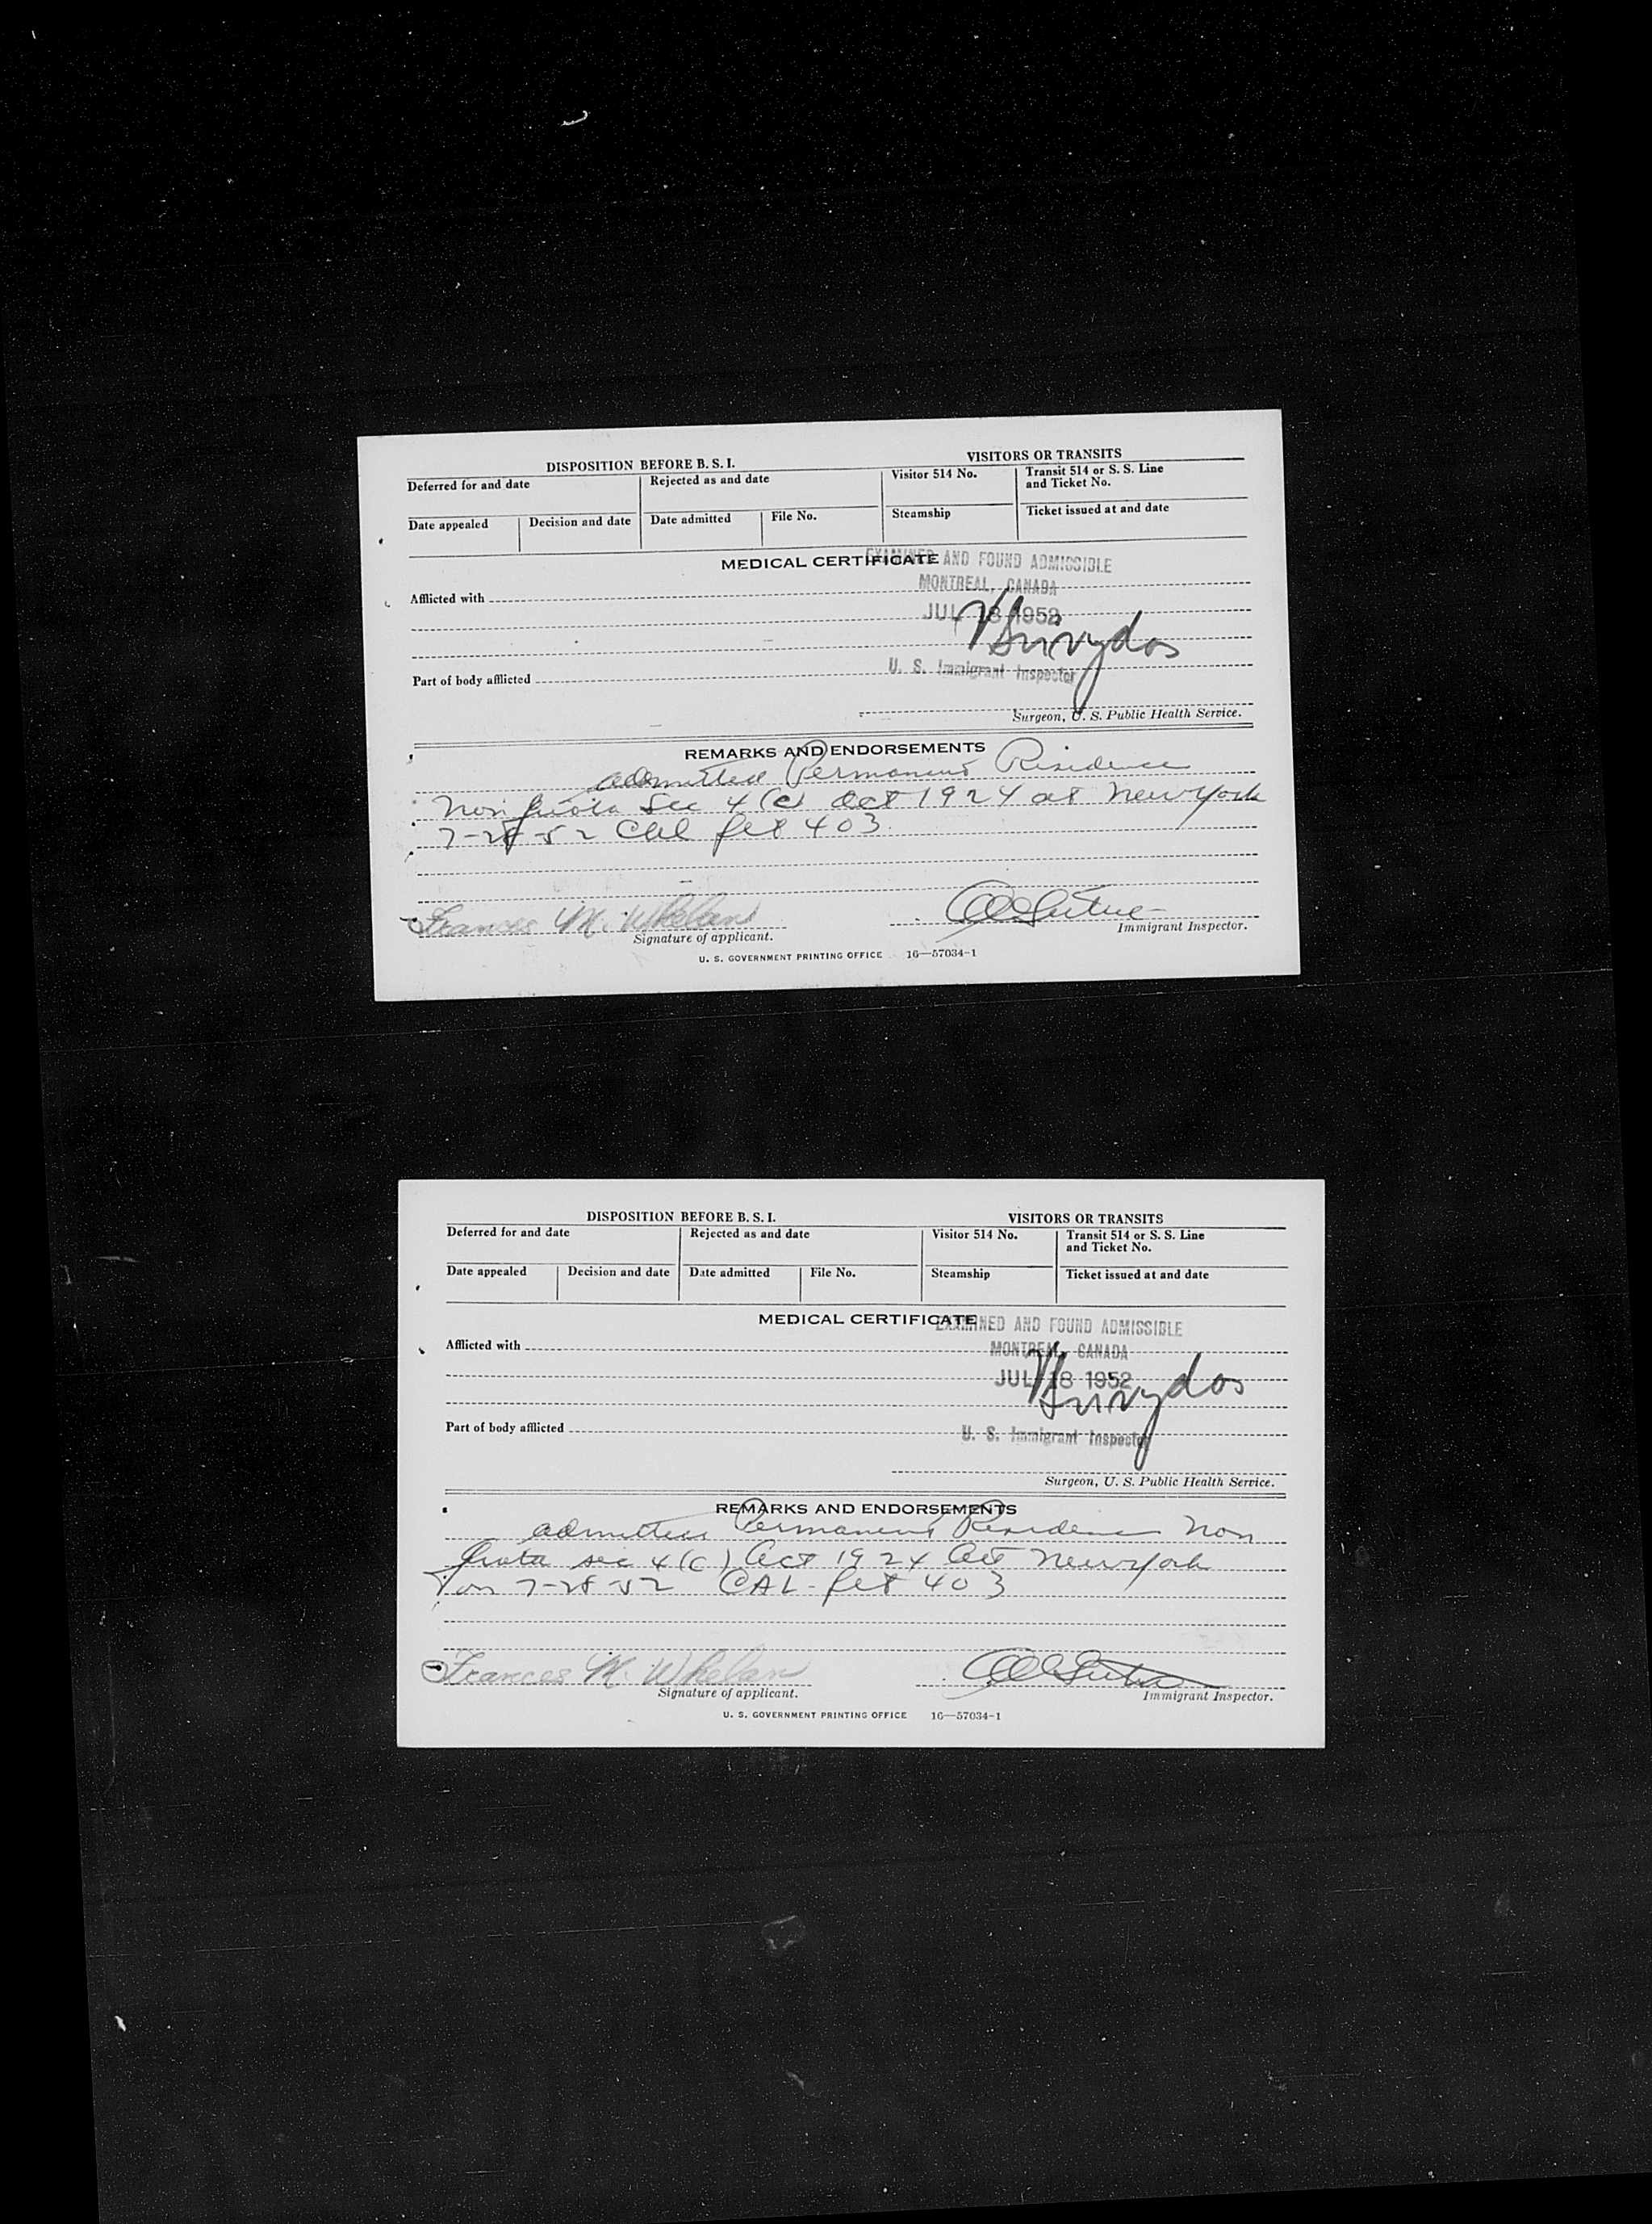 DISPOSITION BEFORE B. S. I.
VISITORS OR TRANSITS
Deferred for and date
Rejected as and date
Visitor 514 No.
Transit 514 or S. S. Line
and Ticket No.
Date appealed
Decision and date
Date admitted
File No.
Steamship
Ticket issued at and date
MEDICAL CERTIFICATE
EXAMINED AND FOUND ADMISSIBLE
MONTREAL, CANADA
Afflicted with
JUL 18 1952
U. S. Immigrant Inspector
Part of body afflicted
Surgeon, U. S. Public Health Service.
REMARKS AND ENDORSEMENTS
admitted Permanent Residence
Non quota Sec 4 (c) act 1924 at New York
7-28-52 Cal 403
Frances M. Whelan
Signature of applicant.
Immigrant Inspector.
U. S. GOVERNMENT PRINTING OFFICE 16—57034-1
DISPOSITION BEFORE B. S. I.
VISITORS OR TRANSITS
Deferred for and date
Rejected as and date
Visitor 514 No.
Transit 514 or S. S. Line
and Ticket No.
Date appealed
Decision and date
Date admitted
File No.
Steamship
Ticket issued at and date
MEDICAL CERTIFICATE
EXAMINED AND FOUND ADMISSIBLE
Afflicted with
MONTREAL, CANADA
JUL 18 1952
Part of body afflicted
U. S. Immigrant Inspector
Surgeon, U. S. Public Health Service.
REMARKS AND ENDORSEMENTS
admitted Permanent Residence Non
quota sec 4 (c) Act 1924 at New York
on 7-28-52 CAL - 403
Frances M. Whelan
Signature of applicant.
Immigrant Inspector.
U. S. GOVERNMENT PRINTING OFFICE 16—57034-1